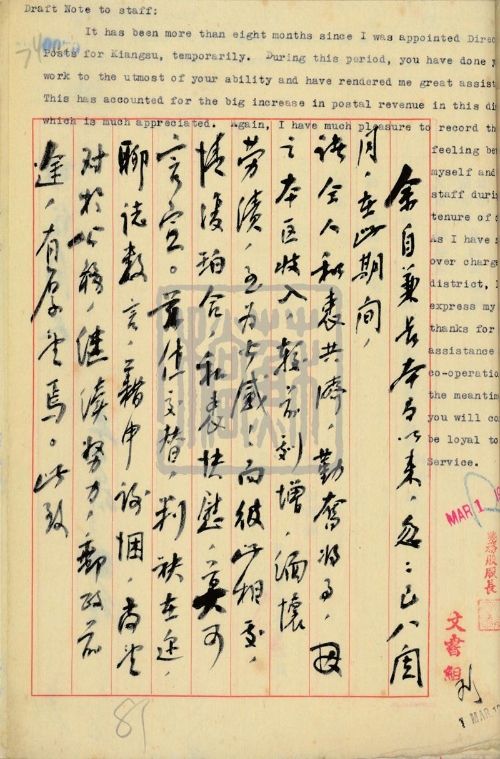 Draft Note to staff:
It has been more than eight months since I was appointed Direc
Posts for Kiangsu, temporarily. During this period, you have done y
work to the utmost of your ability and have rendered me great assist
This has accounted for the big increase in postal revenue in this di
which is much appreciated. Again, I have much pleasure to record th
feeling be
myself and
staff duri
tenure of
As I have
over charge
district, I
express my
thanks for
assistance
co-operatio
the meantim
you will co
be loyal to
Service.
余自兼長本局以來，忽忽已八閱
月，在此期間，
諸仝人和衷共濟，勤奮將事，因
之本區收入，較前劇增，緬懷
勞績，至为感，而彼此相處，
情合，私衷快慰，莫可
言宣。茲值交替，判袂在邇，
聊誌數言，藉申謝悃，尚望
對於公務，繼續努力，郵政前
途，有厚望焉。此致
MAR 1
股長
文書組
1 MAR 19
81